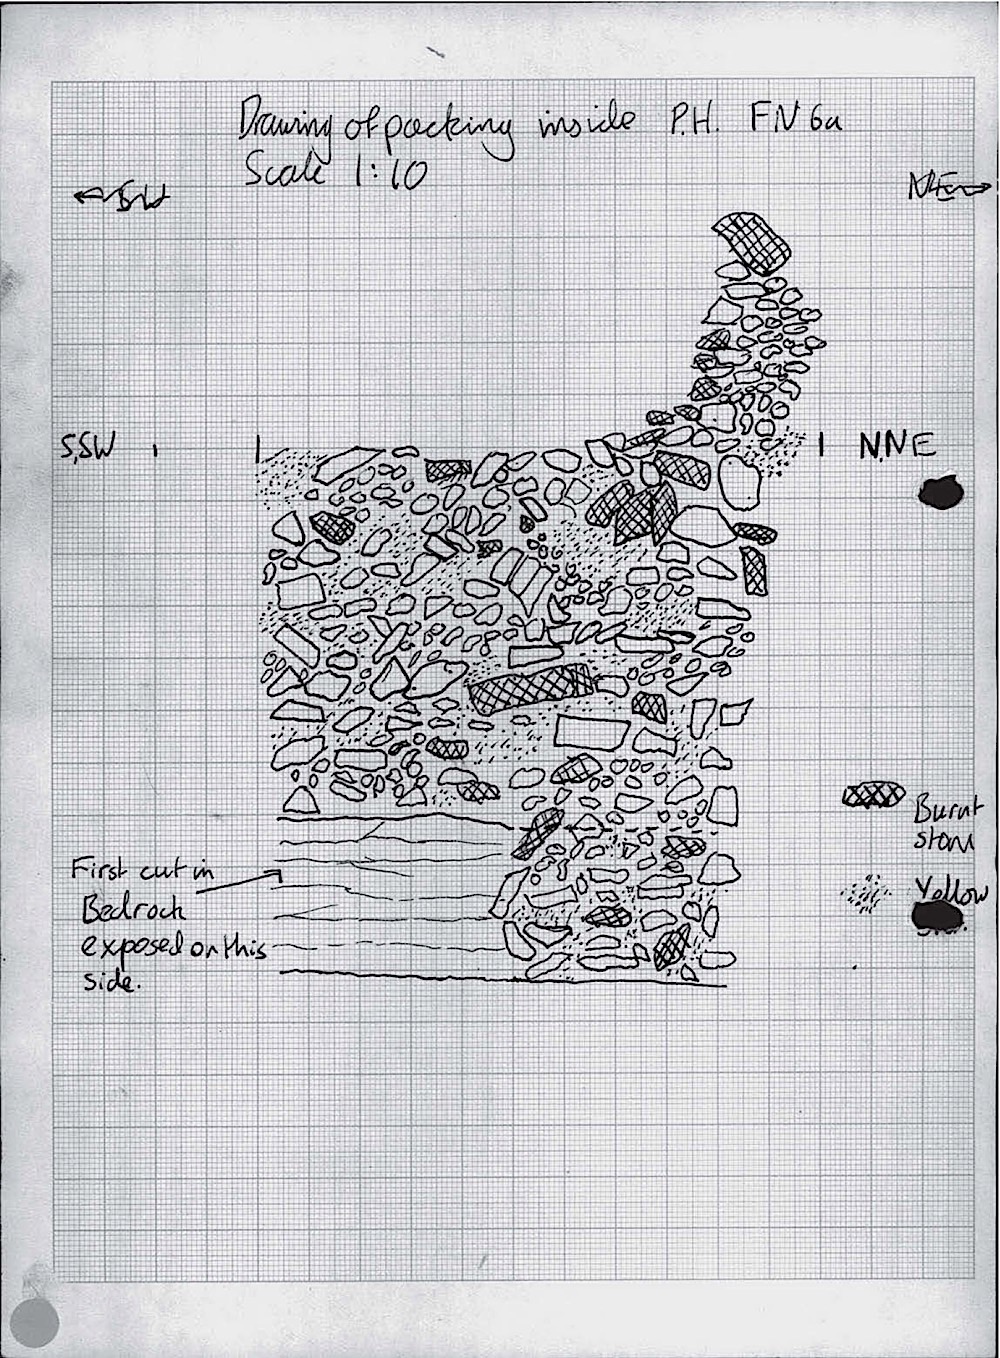 Drawing of packing inside P.H. FN 6a
Scale 1:10
SW
NE
S,SW
N,NE
Burnt
stone
Yellow
First cut in
Bedrock
exposed on this
side.